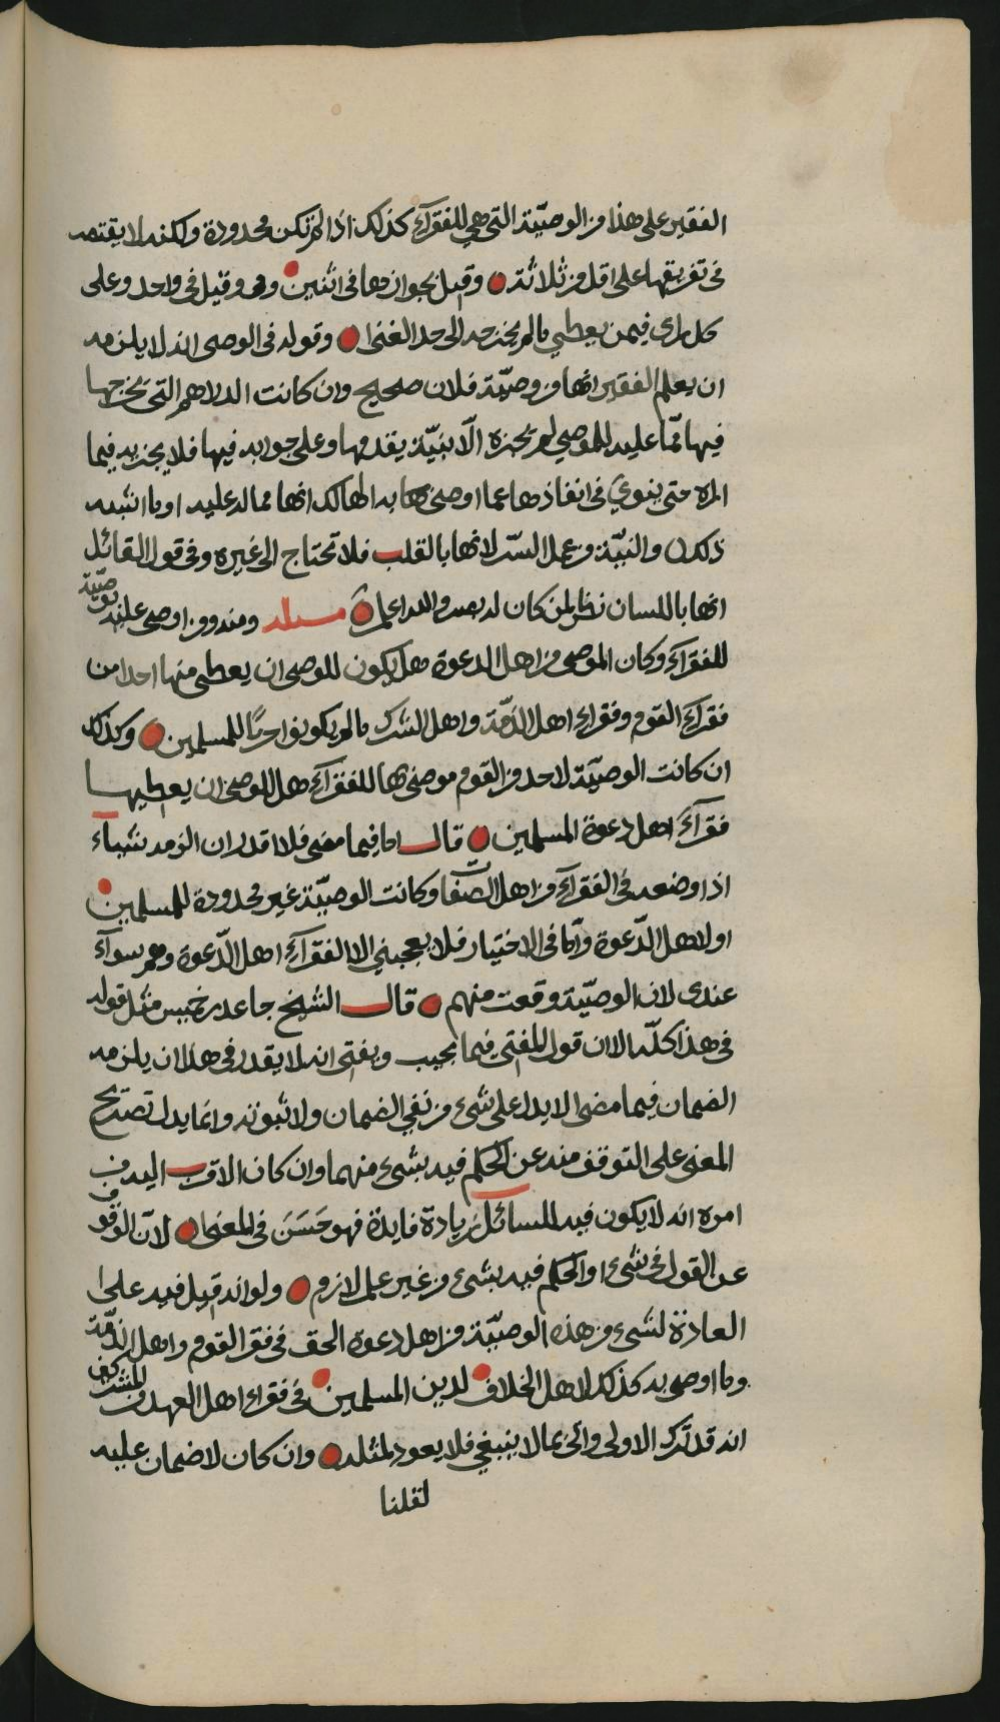 الفقير على هذا من الوصيّة التي هي للفقرآء كذلك اذا لم تكن محدودة ولكنه لا يقتصر
في تفريقها على اقل من ثلاثة وقيل بجوازها في اثنين وقيل في واحد وعلى
كل راي فيمن يعطي مالم يخرجه الى حد الغنا وقوله في الوصي انه لا يلزمه
ان يعلم الفقير انها من وصيّة فلان صحيح وان كانت الدراهم التي يخرجها
فيها ممّا عليه للموصي لم يجزه الّا بنيّة يقدمها وعلى جوابه فيها فلا يجزيه فيما
المره حتى ينوي في انفاذها عما اوصى بها به الهالك انها مما له عليه او ما اشبه
ذلك والنيّة من عمل السّر لانها بالقلب فلا تحتاج الى غيره وفي قول القائل
انها باللسان نظر لمن كان له بصر والله اعلم مسئلة ومنه ومن اوصى عليه بوصيّة
للفقرآء وكان الموصي من اهل الدعوة هل يكون للوصي ان يعطي منها احدا من
فقرآء القوم وفقراء اهل الذمّة واهل الشرك مالم يكونوا حربًا للمسلمين وكذلك
ان كانت الوصيّة لاحد من القوم موصى بها للفقرآء هل للوصي ان يعطيها
فقرآء اهل دعوة المسلمين قال اما فيما مضى فلا اقدر ان الزمه شيئاء
اذا وضعه في الفقرآء من اهل الصفات وكانت الوصيّة غير محدودة للمسلمين
او لاهل الدّعوة وامّا في الاختيار فلا يعجبني الا الفقرآء اهل الدّعوة وهم سوآء
عندي لان الوصيّة وقعت منهم قال الشيخ جاعد بن خميس مثل قوله
في هذا كلّه الا ان قول المفتي فيما يجيب ويفتي انه لا يقدر في هذا ان يلزمه
الضمان فيما مضى لا يدل على شيء من نفي الضمان ولا ثبوته وانما يدل تصريح
المعنى على التوقف منه عن الحكم فيه بشيء منهما وان كان الاقرب اليه في
امره انه لا يكون فيه للسائل زيادة فايدة فهو حَسَن في المعنى لانّ الوقوف
عن القول في شيء او الحكم فيه بشيء من غير علم لازم ولو انه قيل فيه على
العادة لشيء من هذه الوصيّة من اهل دعوة الحق في فقر القوم واهل الذمّة
وما اوصى به كذلك لاهل الخلاف لدين المسلمين في فقراء اهل العهد من المشركين
انه قد ترك الاولى واتى بما لا ينبغي فلا يعود لمثله وان كان لا ضمان عليه
لقلنا